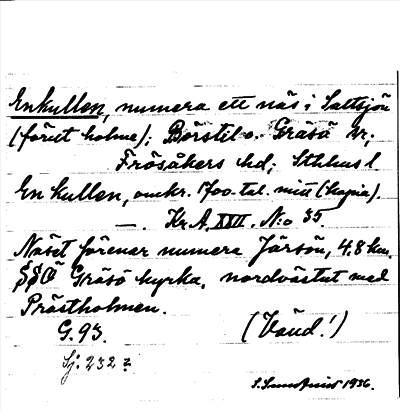 Enkullen, numera ett näs i Saltsjön
(förut holme); Börstil o. Gräsö sr;
Frösåkers hd; Sthlms l
En kullen, omkr. 1700-tal. mitt (kopia).
—. Kr.A. XXII. N:o 35.
Näset förenar numera Järsön, 4,8 km.
SSÖ Gräsö kyrka, nordvästut med
Prästholmen.
G. 93. (Vänd!)
Sj: 232
1936.